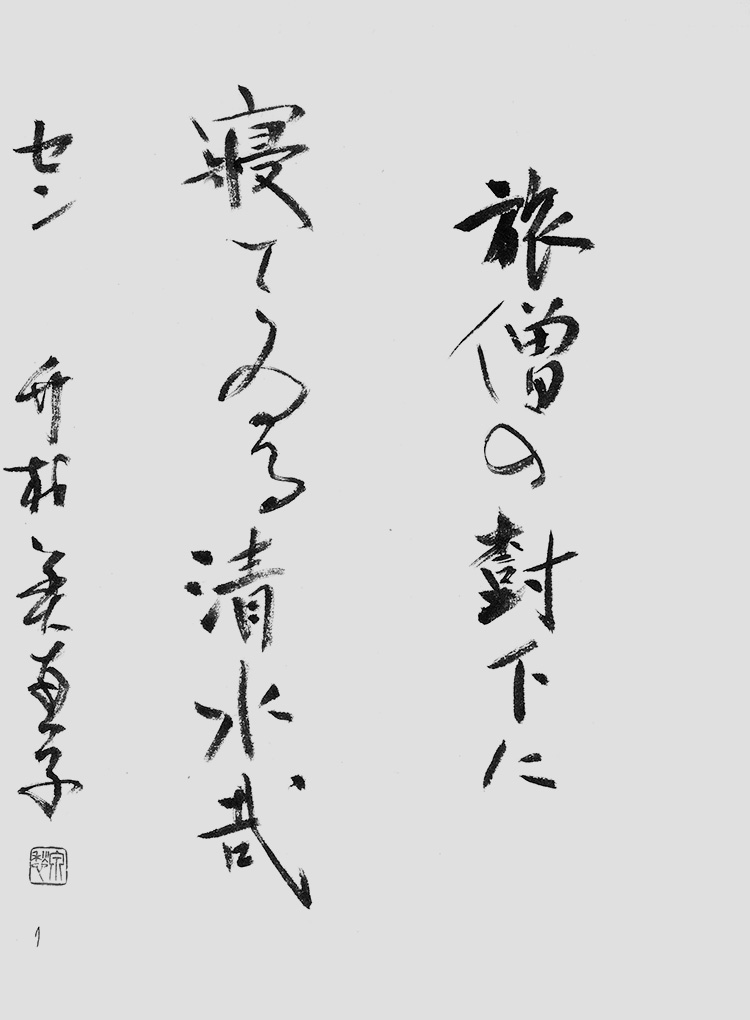 旅僧の樹下に
寝てゐる清水哉
セン 舟木 美恵子